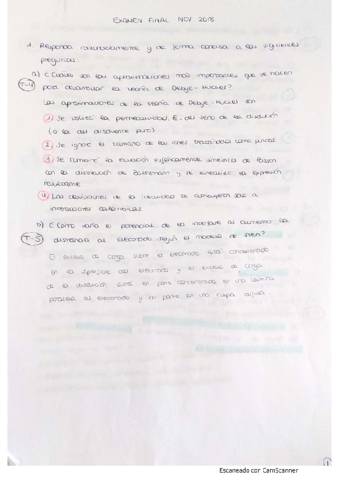 EXAMEN FINAL NOV 2018
1. Responda razonadamente y de forma concisa a las siguientes
preguntas:
a) ¿Cuáles son las aproximaciones más importantes que se hacen
T-4 para desarrollar la teoría de Debye-Hückel?
Las aproximaciones de la teoría de Debye-Hückel son
1) Se utiliza la permeabilidad, E, del seno de la disolución
(o la del disolvente puro)
2) Se ignora el tamaño de los iones tratándolos como puntos
3) Se la ecuación esféricamente simétrica de Poisson
con la distribución de Boltzmann y se la expresión
4) Las desviaciones de la idealidad se solo a
interacciones electrostáticas
b) ¿Cómo varía el potencial de la interfase al aumentar la
T-5 distancia al electrodo según el modelo de Stern?
El exceso de carga sobre el electrodo está concentrado
en la superficie del electrodo y el exceso de carga
de la disolución está en parte concentrado en una lámina
al electrodo y en parte en una capa difusa
1
Escaneado con CamScanner